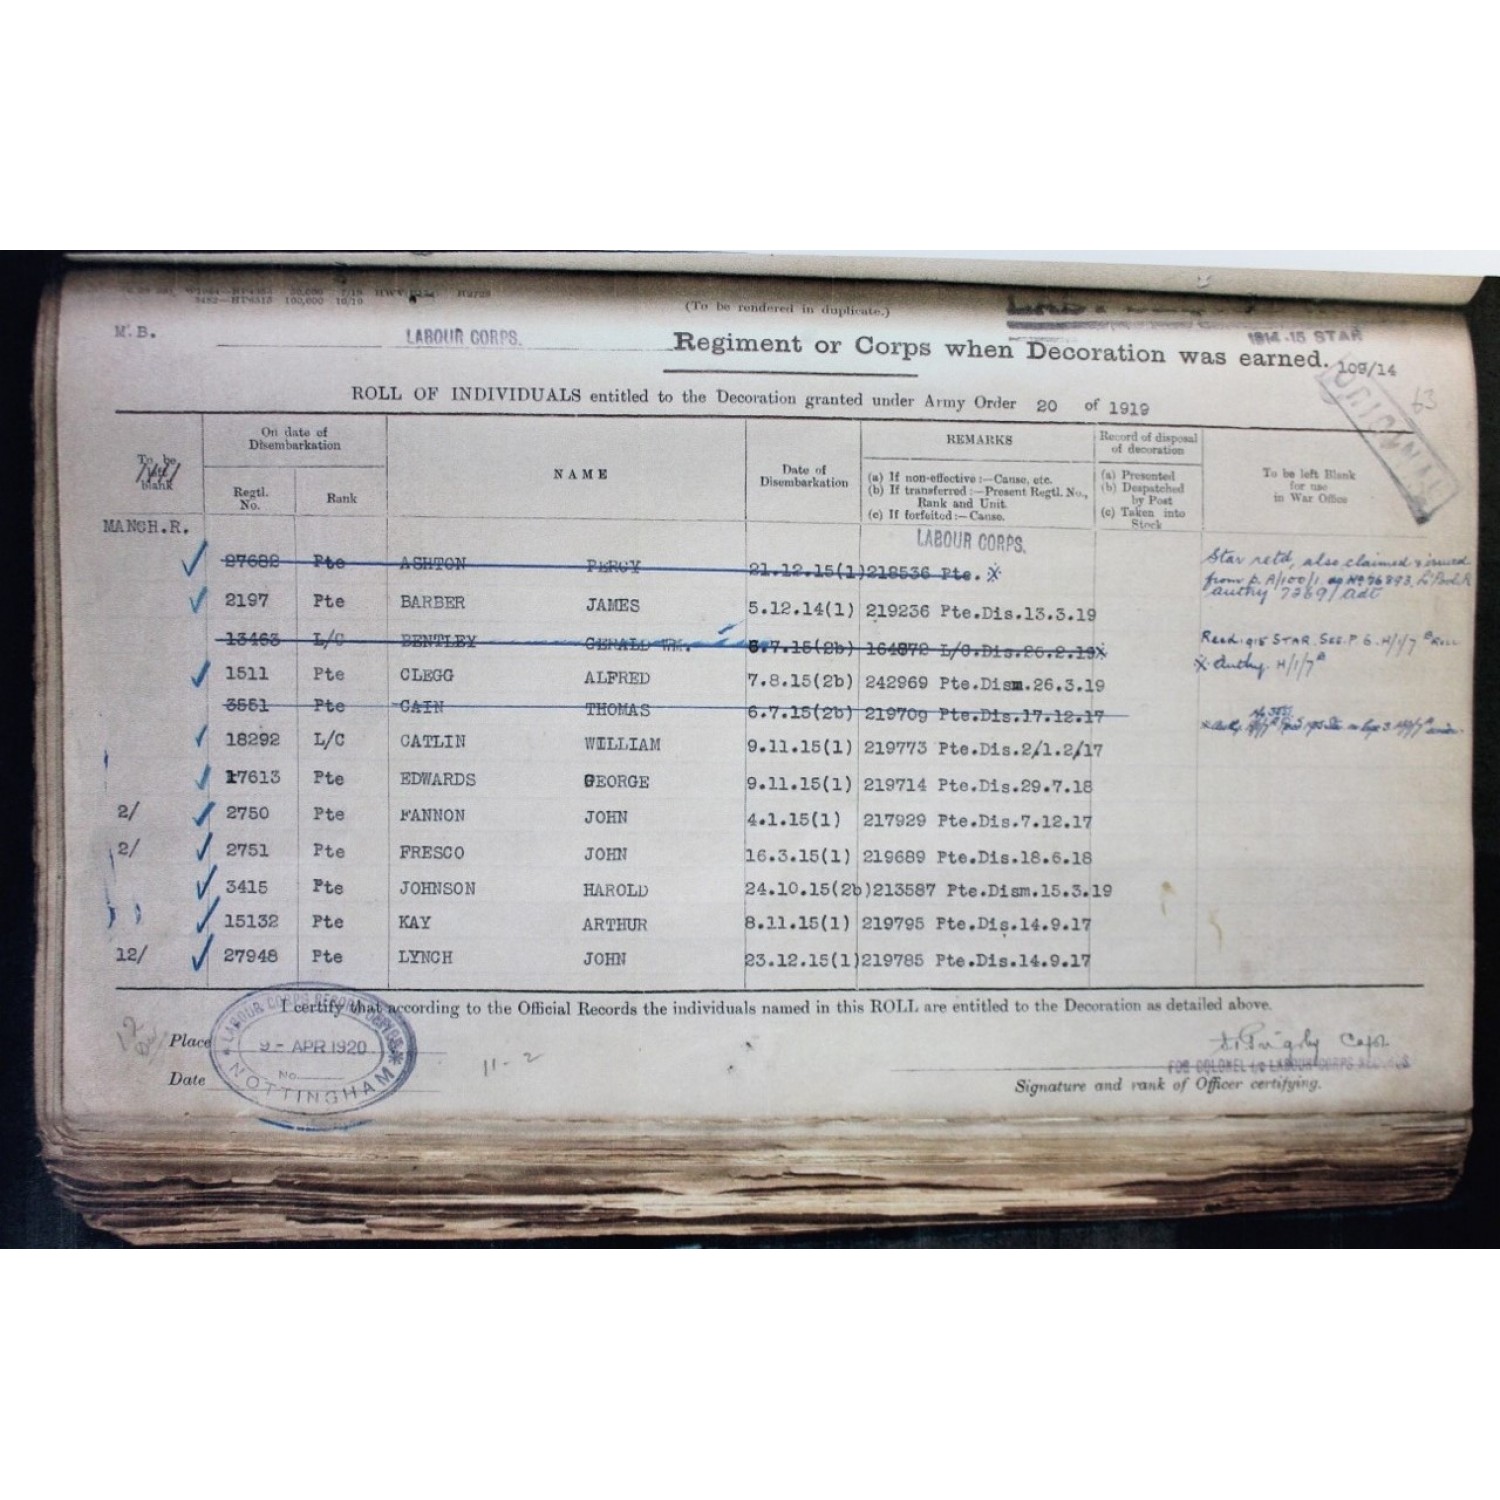 3482—HP6313 100,000 10/19
(To be rendered in duplicate.)
M.B.
LABOUR CORPS.
1914-15 STAR
Regiment or Corps when Decoration was earned.
109/14
ORIGINAL
63
ROLL OF INDIVIDUALS entitled to the Decoration granted under Army Order 20 of 1919
To be
blank
On date of
Disembarkation
Regtl.
No.
Rank
NAME
Date of
Disembarkation
REMARKS
(a) If non-effective:—Cause, etc.
(b) If transferred:—Present Regtl. No.,
Rank and Unit.
(c) If forfeited:—Cause.
Record of disposal
of decoration
(a) Presented
(b) Despatched
by Post
(c) Taken into
Stock
To be left Blank
for use
in War Office
MANCH.R.
LABOUR CORPS.
27682 Pte ASHTON PERCY 21.12.15(1) 218536 Pte. X
Star retd, also claimed & issued
from p. A/100/1 as No 26893, L'Pool R
authy 7269/Adt
2197 Pte BARBER JAMES 5.12.14(1) 219236 Pte.Dis.13.3.19
13463 L/C BENTLEY GERALD WM. 6.7.15(2b) 164872 L/C.Dis.26.2.19 X
Recd. 915 STAR. SEE. P 6. H/1/7 B ROLL
X Authy. H/1/7 B
1511 Pte CLEGG ALFRED 7.8.15(2b) 242969 Pte.Dism.26.3.19
3551 Pte CAIN THOMAS 6.7.15(2b) 219709 Pte.Dis.17.12.17
18292 L/C CATLIN WILLIAM 9.11.15(1) 219773 Pte.Dis.2/1.2/17
17613 Pte EDWARDS GEORGE 9.11.15(1) 219714 Pte.Dis.29.7.18
2/ 2750 Pte FANNON JOHN 4.1.15(1) 217929 Pte.Dis.7.12.17
2/ 2751 Pte FRESCO JOHN 16.3.15(1) 219689 Pte.Dis.18.6.18
3415 Pte JOHNSON HAROLD 24.10.15(2b) 213587 Pte.Dism.15.3.19
15132 Pte KAY ARTHUR 8.11.15(1) 219795 Pte.Dis.14.9.17
12/ 27948 Pte LYNCH JOHN 23.12.15(1) 219785 Pte.Dis.14.9.17
I certify that according to the Official Records the individuals named in this ROLL are entitled to the Decoration as detailed above.
Place
LABOUR CORPS RECORD OFFICE
9 - APR 1920
No
NOTTINGHAM
Date
11-2
Capt.
FOR COLONEL i/c LABOUR CORPS RECORDS
Signature and rank of Officer certifying.